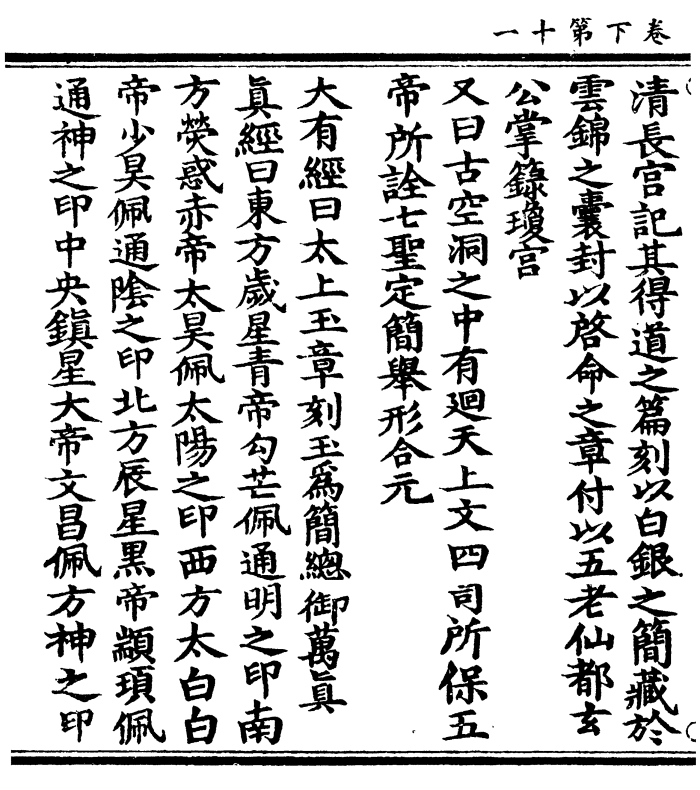 卷下第十一
清長宫記其得道之篇刻以白銀之簡藏於
雲錦之囊封以啓命之章付以五老仙都玄
公掌籙瓊宫
又曰古空洞之中有廻天上文四司所保五
帝所詮七聖定簡舉形合元
大有經曰太上玉章刻玉爲簡總御萬眞
眞經曰東方歲星青帝勾芒佩通明之印南
方熒惑赤帝太昊佩太陽之印西方太白白
帝少昊佩通陰之印北方辰星黑帝顓頊佩
通神之印中央鎮星大帝文昌佩方神之印